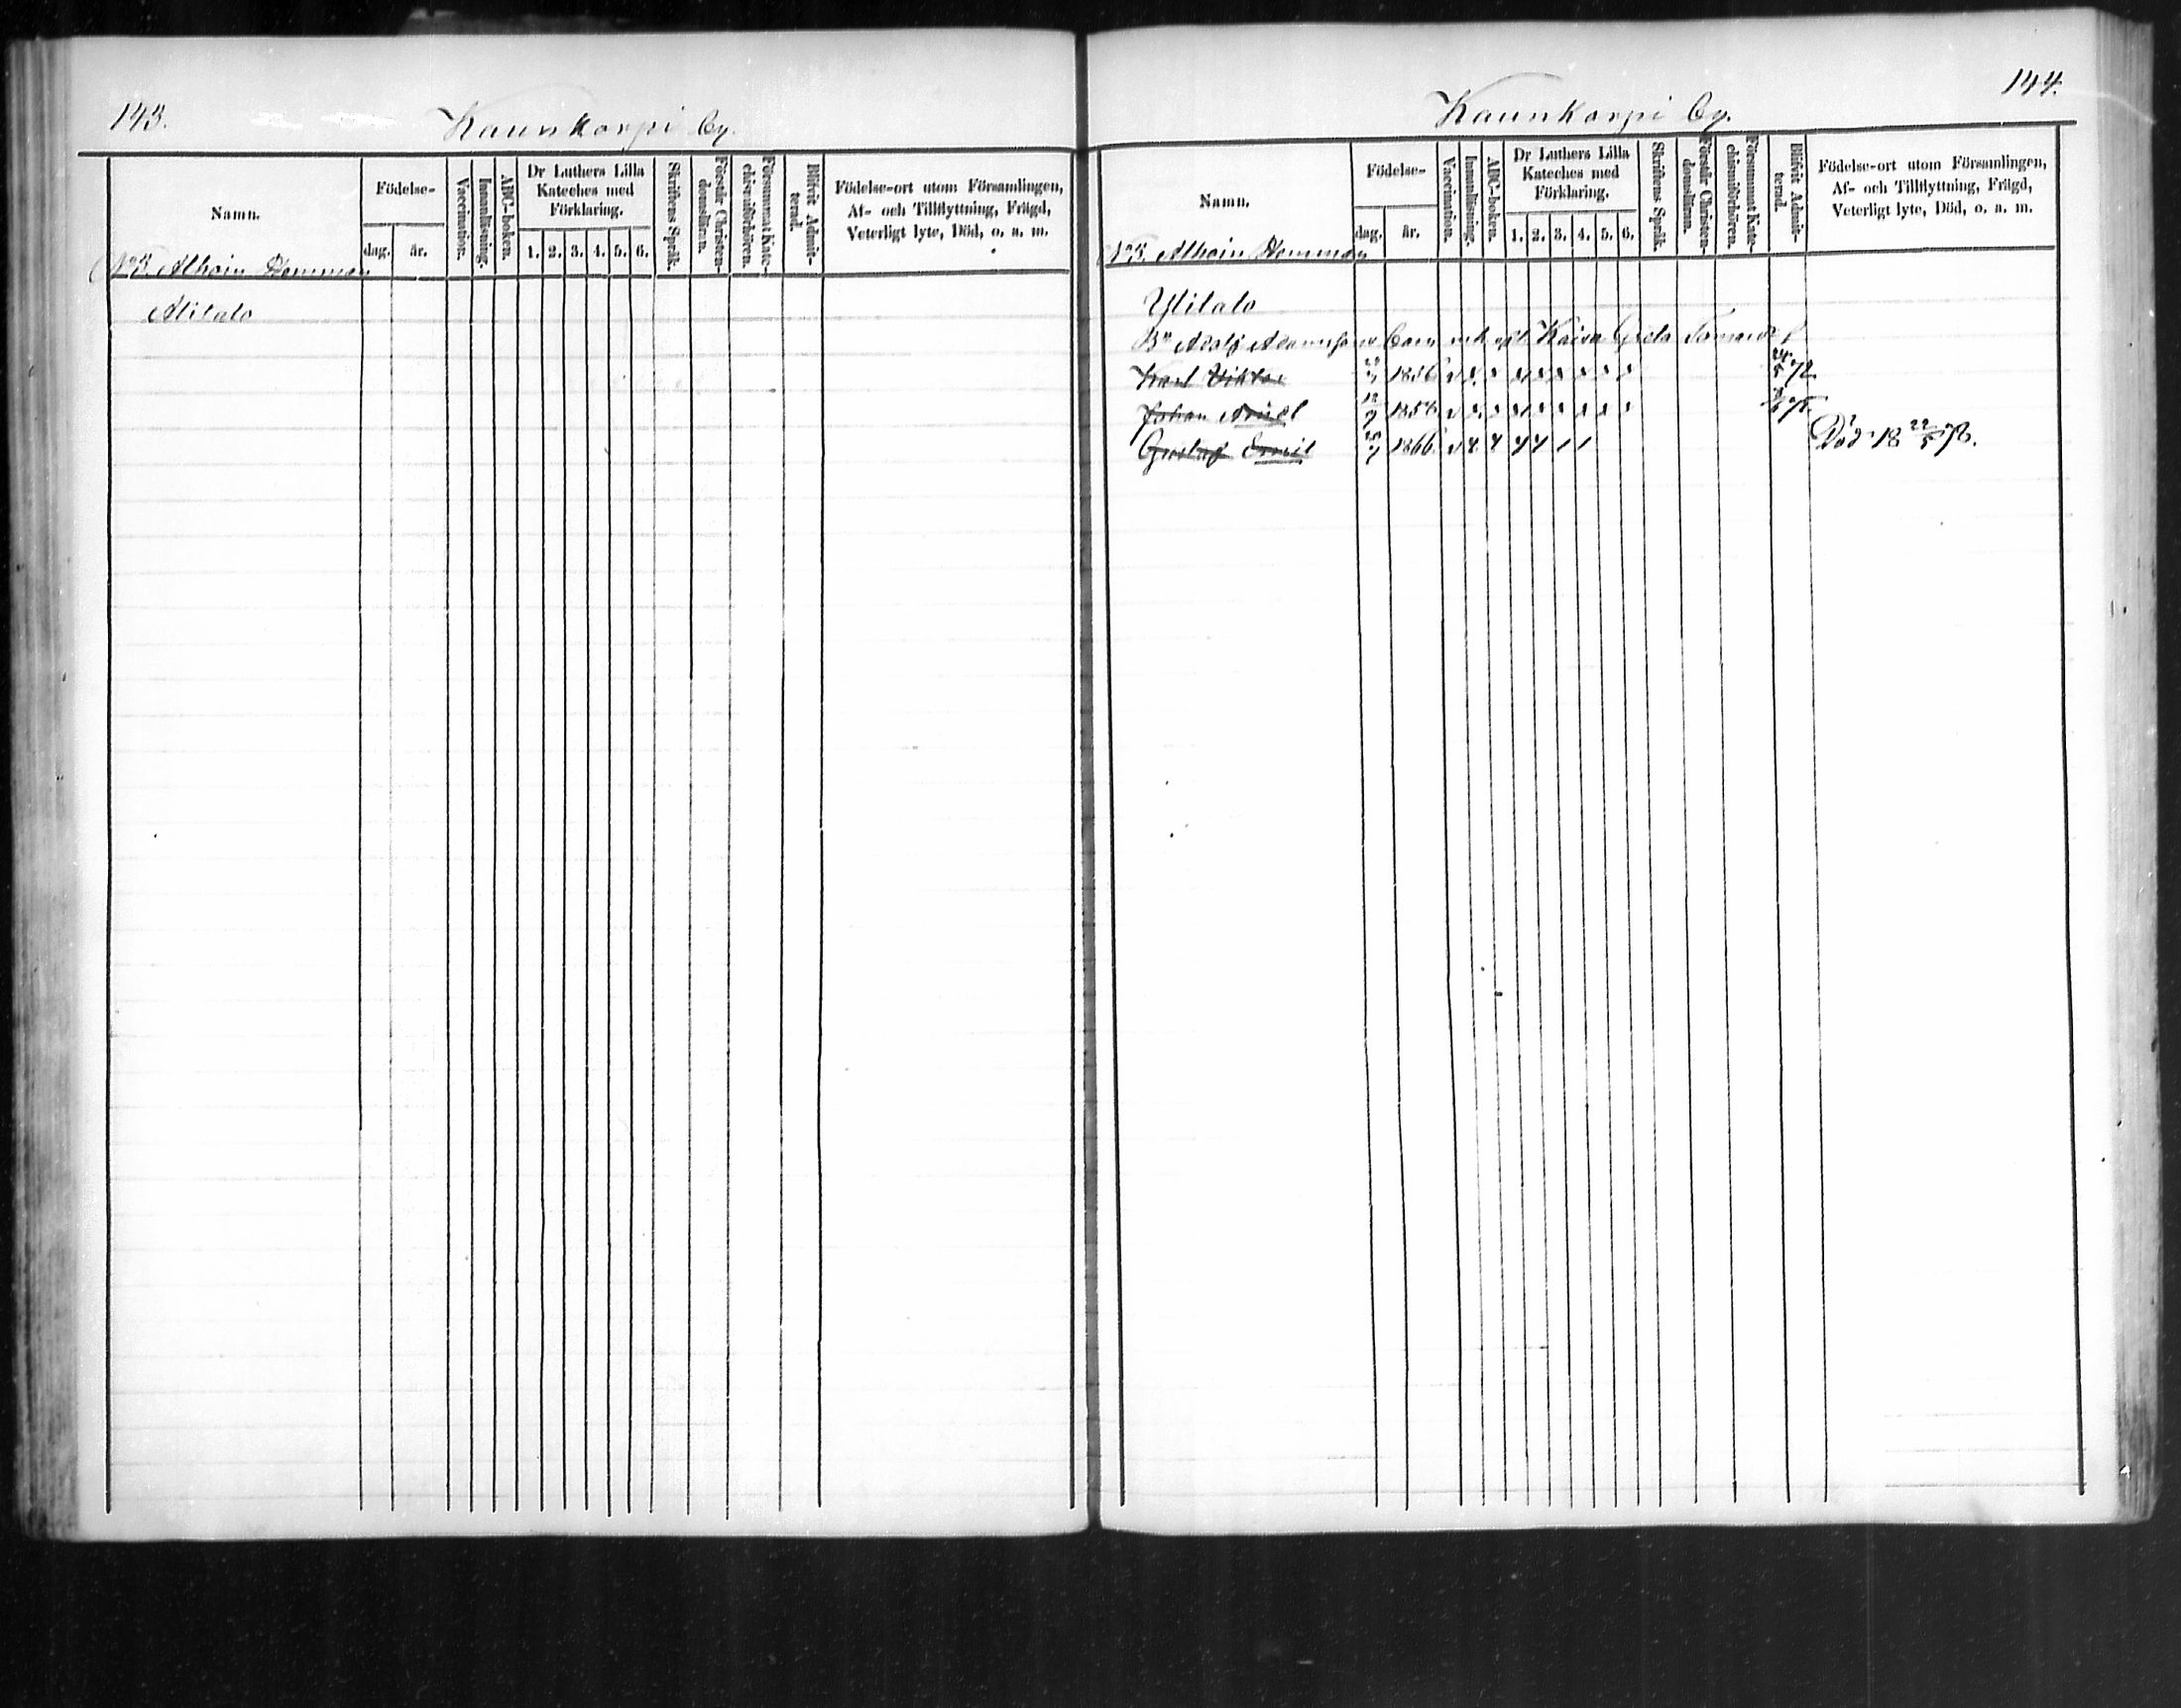 143.
Kaunkorpi by.
Namn.
Födelse-
dag.
år.
Vaccination.
Innanläsning.
ABC-boken.
Dr Luthers Lilla
Kateches med
Förklaring.
1. 2. 3. 4. 5. 6.
Skriftens Språk.
Förstår Christen-
domsläran.
Försummat Kate-
chismiförhören.
Blifvit Admit-
terad.
Födelse-ort utom Församlingen,
Af- och Tillflyttning, Frägd,
Veterligt lyte, Död, o. a. m.
Alhoin Hemman
Alitalo
144.
Kaunkorpi by.
Namn.
Födelse-
dag.
år.
Vaccination.
Innanläsning.
ABC-boken.
Dr Luthers Lilla
Kateches med
Förklaring.
1. 2. 3. 4. 5. 6.
Skriftens Språk.
Förstår Christen-
domsläran.
Försummat Kate-
chismiförhören.
Blifvit Admit-
terad.
Födelse-ort utom Församlingen,
Af- och Tillflyttning, Frägd,
Veterligt lyte, Död, o. a. m.
Alhoin Hemman
Ylitalo
Bn Adolf Adamson Barn Kaisa Greta
Karl Viktor 1856
Johan 1858
Gustaf Emil 1866 Död 18 22/5 78.